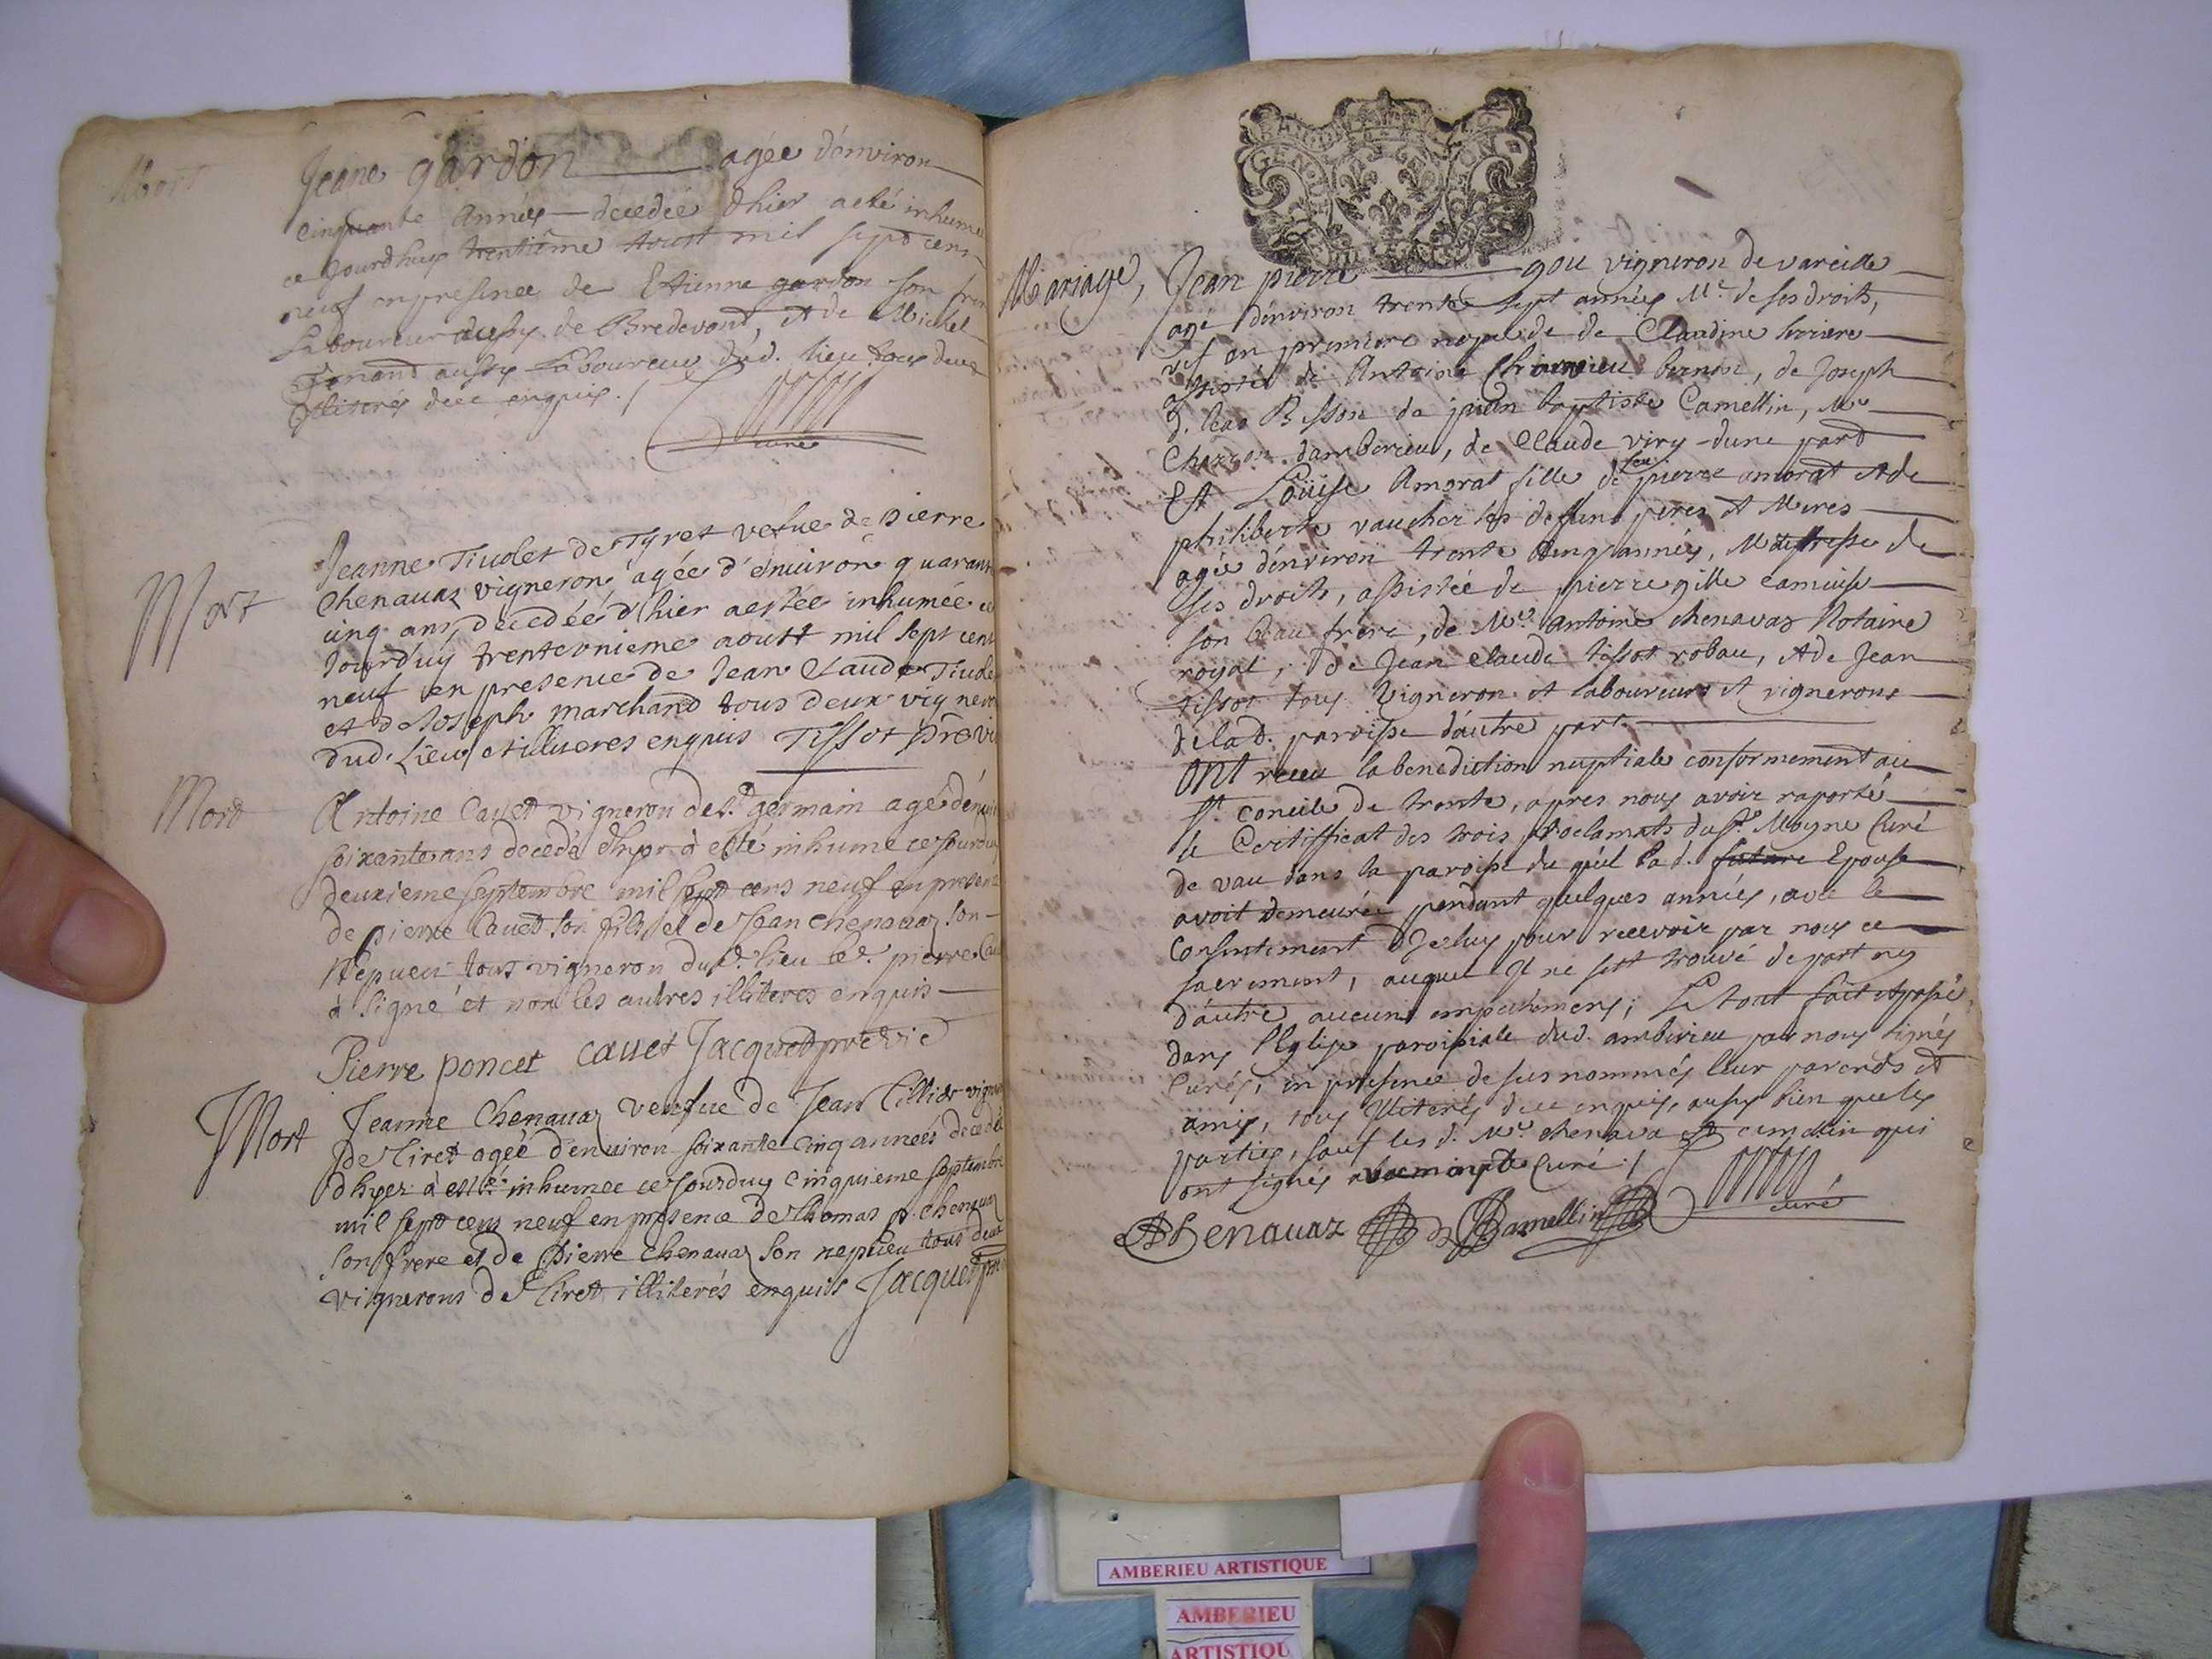 Mort
Jeane gardon agée d'environ
cinquante Années decedée d'hier a eté inhumé
ce Jourdhuy trentième Aoust mil sept cens
neuf en presence de Etienne gardon son frere
Laboureur de Bredevent, et de Michel
aussy Laboureur dud. lieu tous deux
illiteres de ce enquis./
curé
Mort
Jeanne Tiuolet de Tyret vefue de pierre
Chenauaz vigneron agée d'enuiron quarante
cinq ans, decedée d'hier a estée inhumée ce
Jourd'uy trenteunieme aoust mil sept cent
neuf en presence de Jean Claude Tiuole
et de Joseph marchand tous deux vigneron
dud. Lieu et illiteres enquis Tissot previc
Mort
Antoine Cauet vigneron de St. germain agé denuiron
soixante ans decedé dhyer à esté inhumé ce Jourduy
deuxieme septembre mil sept cens neuf en presence
de pierre Cauet son fils et de Jean Chenauaz son
Nepueu tous vigneron dud. lieu led. pierre Cauet
à signé et non les autres illiteres enquis
Pierre poncet cauet Jacquet previc
Mort
Jeanne Chenauaz veufue de Jean Tillier vigneron
de tiret agée denuiron soixante cinq années decedée
dhyer à esté inhumee ce Jourduy cinquieme septembre
mil sept cens neuf en presence de thomas p. chenauaz
son frere et de Pierre Chenauaz son nepueu tous deux
vignerons de tiret illiterés enquis Jacquet
GEN
Mariage,
Jean pierre gou vigneron de vareille
agé d'environ trente sept années Me. de ses droits,
vef en premiere nopce de de Claudine
assisté de Antoine bernin, de Joseph
de jean baptiste Camellin, Me
d'amberieu, de Claude viry dune part
Et Loüise Amorat fille de feu pierre amorat et de
philiberte vaucher ses defuns peres et Meres
agée d'environ trente cinq années, Maistresse de
ses droits, assistée de pierre gille
son beau frere, de Me. antoine chenavaz Notaire
royal, de Jean claude tissot robau, et de Jean
tissot tous Vigneron et laboureurs et vignerons
de lad. paroisse d'autre part
Ont receu la benediction nuptiale conformement au
st. concile de trente, apres nous avoir raporté
le Certifficat des trois proclamats du Sr. Moyne Curé
de vau dans la paroisse du quel lad. future Epouse
avoit demeurée pendant quelques années, avec le
Consentement d'Iceluy pour recevoir par nous ce
sacrement, auquel Il ne sest trouvé de part ny
d'autre aucuns empechemens; Le tout fait et passé
dans l'Eglise paroissiale dud. amberieu par nous signés
Curés, en presence de susnommés leur parents et
amis, tous Illiterés de ce enquis, aussy bien que les
parties, sauf les d. Me. chenava et camelin qui
ont signés curé./
Chenauaz Camellin
curé
AMBERIEU ARTISTIQUE
AMBERIEU
ARTISTIQU